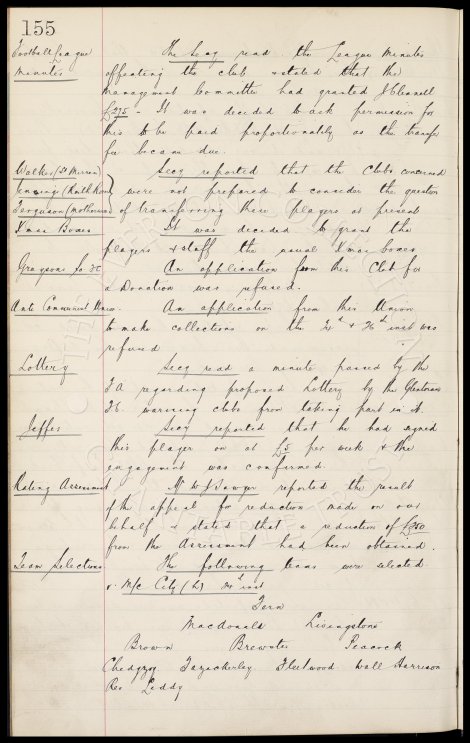 155
Football League The Secy read the League Minutes
Minutes affecting the club & stated that the
Management Committee had granted J Cleanell
£275 - It was decided to ask permission for
this to be paid proportionately as the transfer
fee became due.
Walker (St Mirren) Secy reported that the Clubs concerned
(Raith Rovers) were not prepared to consider the question
Ferguson (Motherwell) of transferring these players at present
Xmas Boxes It was decided to grant the
players & staff the usual Xmas boxes
Graysons Fc An application from this Club for
a Donation was refused.
Anti Communist Union. An application from this Union
to make collections on the & 26th inst was
refused
Lottery Secy read a minute passed by the
FA regarding proposed Lottery by the
FC. warning clubs from taking part in it.
Jeffes Secy reported that he had signed
this player on at £5 per week & the
engagement was confirmed.
Rating Assessment Mr W J Sawyer reported the result
of the appeal for reduction made on our
behalf & stated that a reduction of £260
from the Assessment had been obtained.
Team Selections The following teams were selected.
v. M/c City (L) inst
Fern
Macdonald Livingstone
Brown Brewster Peacock
Chedgzoy Fazackerley Fleetwood Wall Harrison
Res Leddy